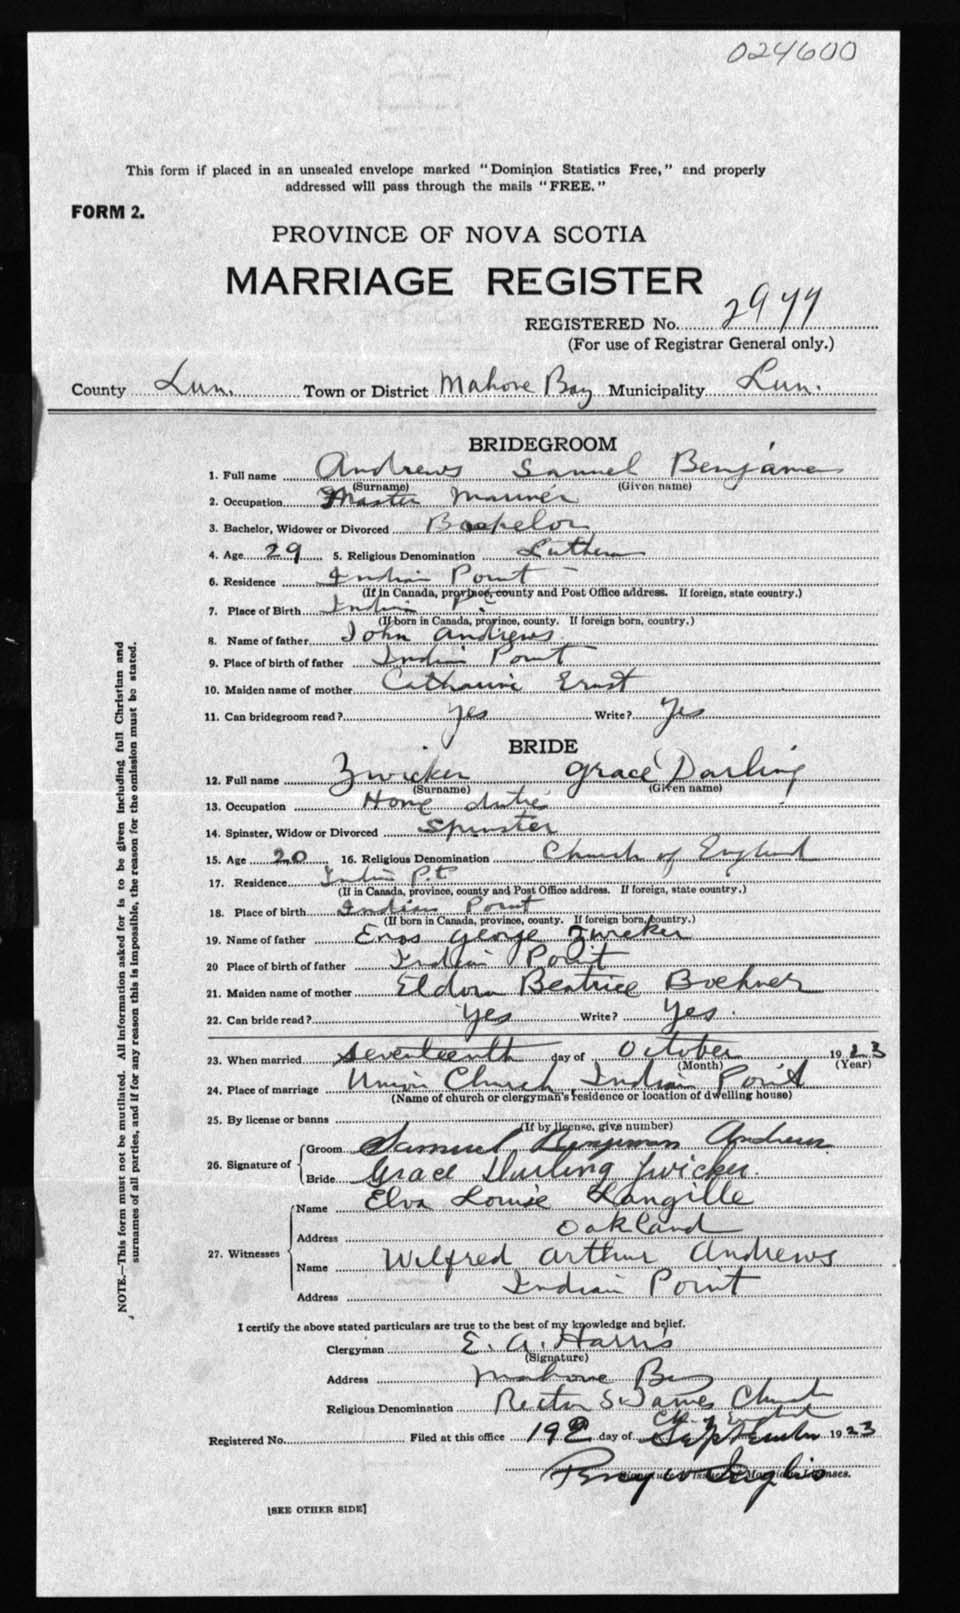 024600
This form if placed in an unsealed envelope marked "Dominion Statistics Free," and properly
addressed will pass through the mails "FREE."
FORM 2.
PROVINCE OF NOVA SCOTIA
MARRIAGE REGISTER
REGISTERED No. 2977
(For use of Registrar General only.)
County Lun. Town or District Mahone Bay Municipality Lun.
BRIDEGROOM
1. Full name Andrews Samuel Benjamen
(Surname) (Given name)
2. Occupation Master Mariner
3. Bachelor, Widower or Divorced Bachelor
4. Age 29 5. Religious Denomination Lutheran
6. Residence Indian Point
(If in Canada, province, county and Post Office address. If foreign, state country.)
7. Place of Birth Indian Pt
(If born in Canada, province, county. If foreign born, country.)
8. Name of father John Andrews
9. Place of birth of father Indian Point
10. Maiden name of mother Catharine Ernst
11. Can bridegroom read? Yes Write? Yes
BRIDE
12. Full name Zwicker Grace Darling
(Surname) (Given name)
13. Occupation Home duties
14. Spinster, Widow or Divorced Spinster
15. Age 20 16. Religious Denomination Church of England
17. Residence Indian Pt.
(If in Canada, province, county and Post Office address. If foreign, state country.)
18. Place of birth Indian Point
(If born in Canada, province, county. If foreign born, country.)
19. Name of father Enos George Zwicker
20 Place of birth of father Indian Point
21. Maiden name of mother Eldora Beatrice Boehner
22. Can bride read? Yes Write? Yes.
23. When married Seventeenth day of October 1923
(Month) (Year)
24. Place of marriage Union Church, Indian Point
(Name of church or clergyman's residence or location of dwelling house)
25. By license or banns
(If by license, give number)
26. Signature of Groom Samuel Benjamin Andrews
Bride Grace Darling Zwicker.
27. Witnesses Name Elva Louise Langille
Address Oakland
Name Wilfred Arthur Andrews
Address Indian Point
I certify the above stated particulars are true to the best of my knowledge and belief.
Clergyman E. A. Harris
(Signature)
Address Mahone Bay
Religious Denomination Rector St James Church
Ch. of England
Registered No. Filed at this office 19 day of September 1923
Signature of Issuer of Marriage Licenses.
[SEE OTHER SIDE]
NOTE.—This form must not be mutilated. All information asked for is to be given including full Christian and
surnames of all parties, and if for any reason this is impossible, the reason for the omission must be stated.